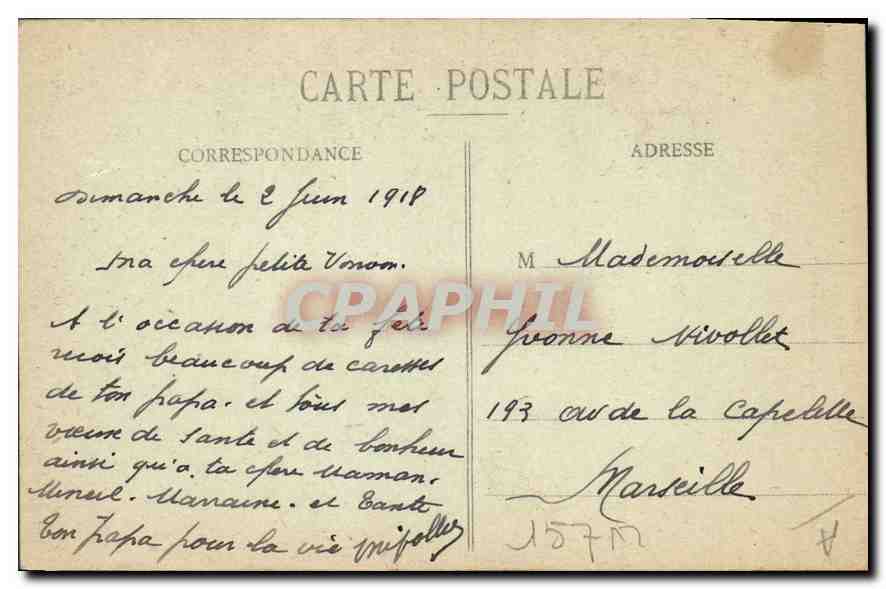 CARTE POSTALE
CORRESPONDANCE
Dimanche le 2 Juin 1918
Ma chere petite Vonvon.
A l'occasion de ta fete
recois beaucoup de caresses
de ton papa. et tous mes
voeux de sante et de bonheur
ainsi qu'a ta chere Maman.
Marraine. et Tante
Ton Papa pour la vie Nivollet
ADRESSE
M Mademoiselle
Yvonne Nivollet
193 av de la Capelette
Marseille
157M
CPAPHIL